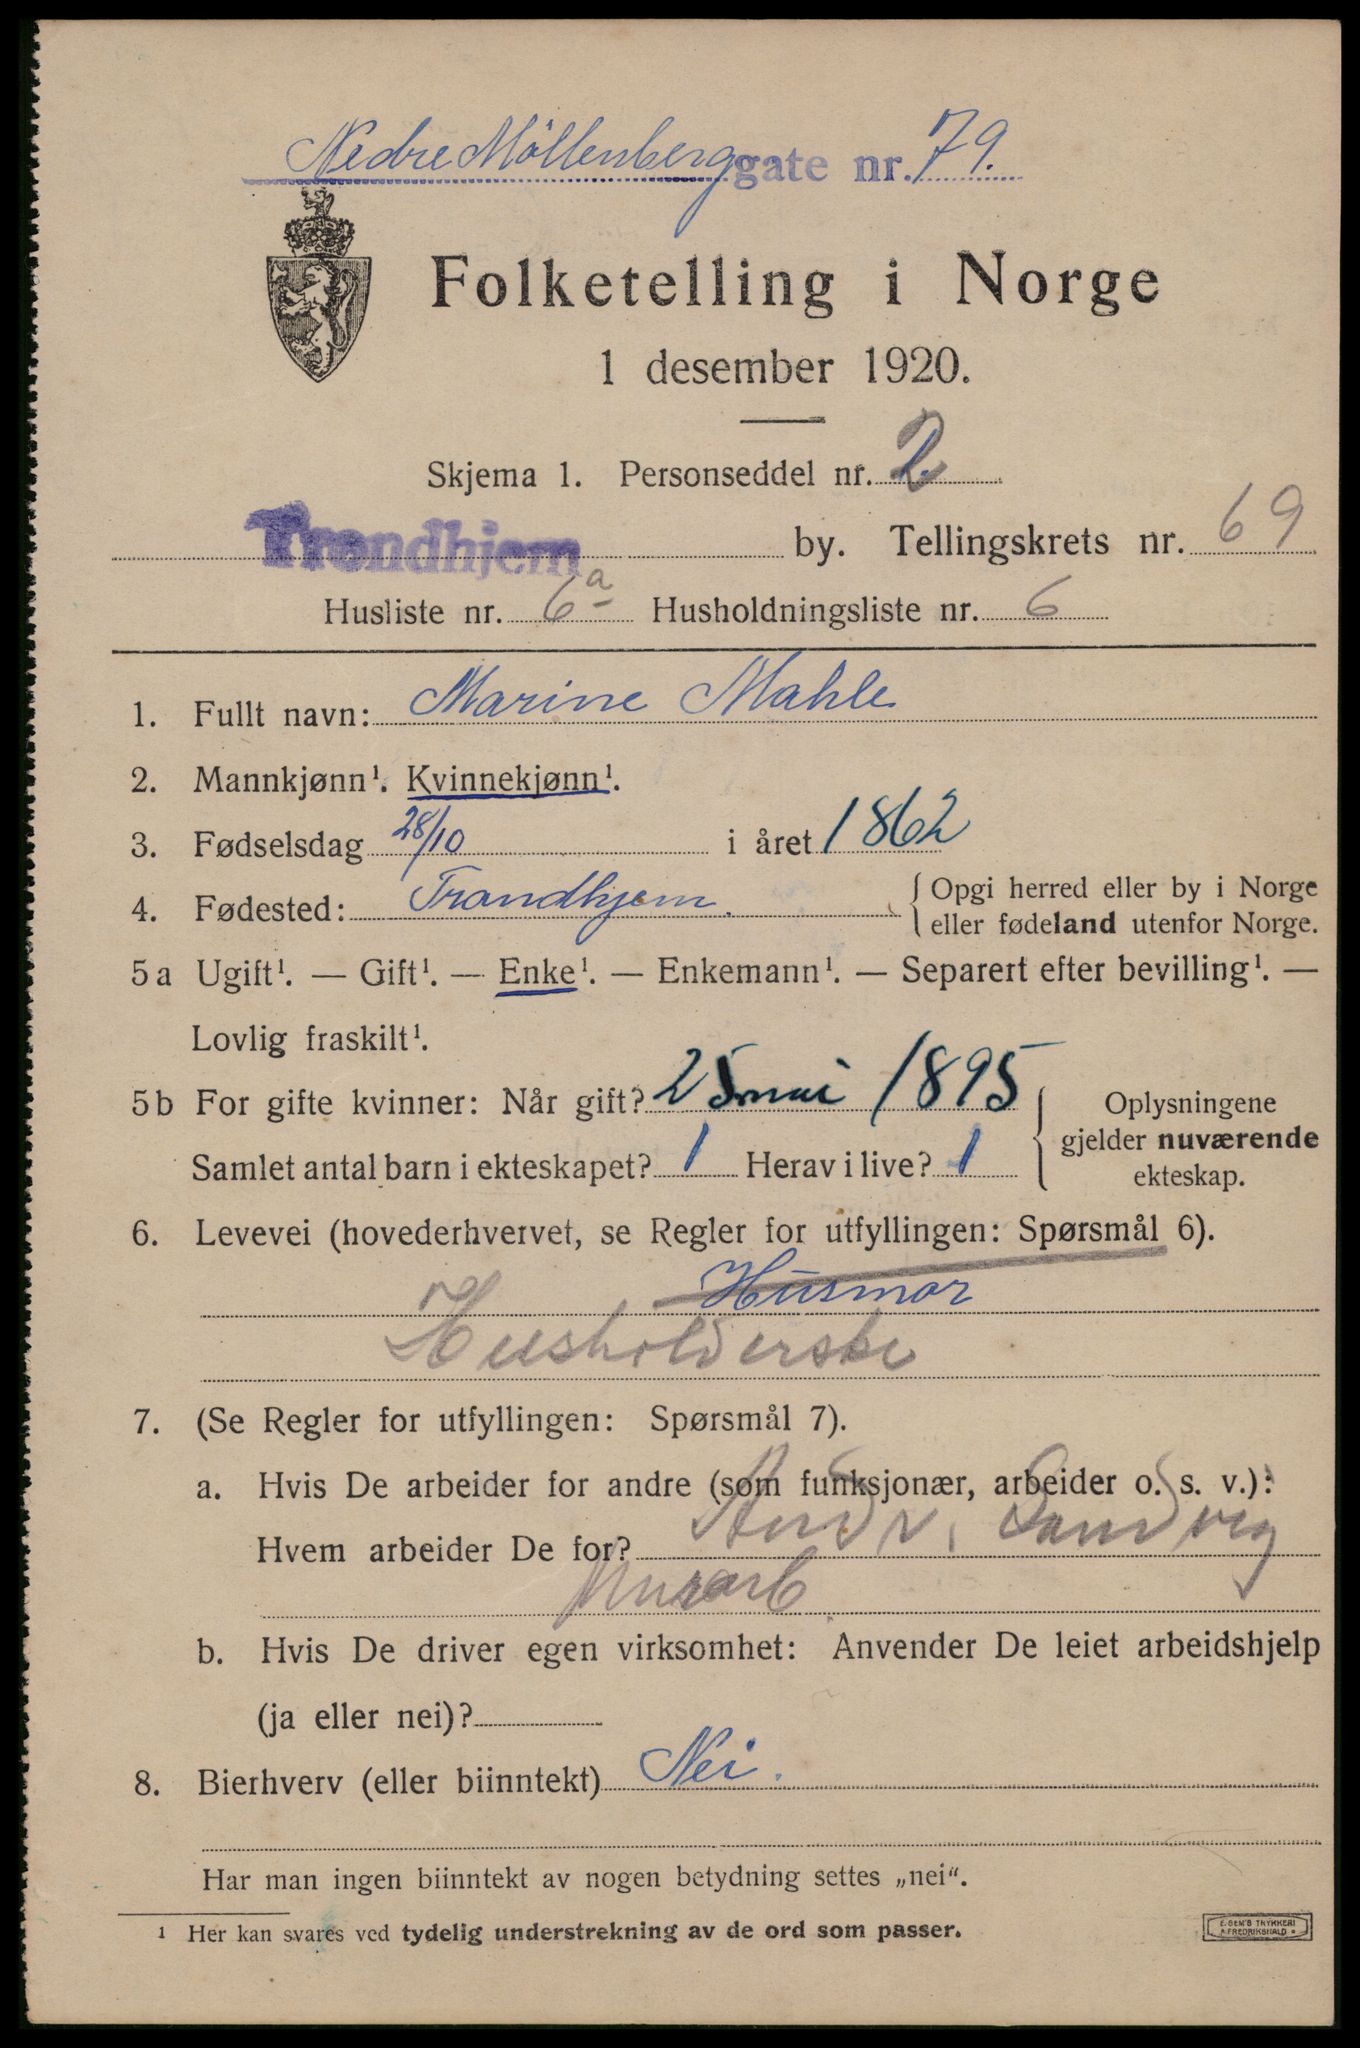 Nedre Möllenberg gate nr. 79.
Folketelling i Norge
1 desember 1920.
Skjema 1. Personseddel nr. 2
Trondhjem by. Tellingskrets nr. 69
Husliste nr. 6a Husholdningsliste nr. 6
1. Fullt navn: Marine Mahle
2. Mannkjønn¹. Kvinnekjønn¹.
3. Fødselsdag 28/10 i året 1862
4. Fødested: Trondhjem. { Opgi herred eller by i Norge
eller fødeland utenfor Norge.
5a Ugift¹. — Gift¹. — Enke¹. — Enkemann¹. — Separert efter bevilling¹. —
Lovlig fraskilt¹.
5b For gifte kvinner: Når gift? 25 mai 1895
Samlet antal barn i ekteskapet? 1 Herav i live? 1
Oplysningene
gjelder nuværende
ekteskap.
6. Levevei (hovederhvervet, se Regler for utfyllingen: Spørsmål 6).
Husmor
Husholderske
7. (Se Regler for utfyllingen: Spørsmål 7).
a. Hvis De arbeider for andre (som funksjonær, arbeider o. s. v.):
Hvem arbeider De for? Andr. Sandvig
Murarb
b. Hvis De driver egen virksomhet: Anvender De leiet arbeidshjelp
(ja eller nei)?
8. Bierhverv (eller biinntekt) Nei.
Har man ingen biinntekt av nogen betydning settes „nei“.
¹ Her kan svares ved tydelig understrekning av de ord som passer.
E. SEM'S TRYKKERI
FREDRIKSHALD